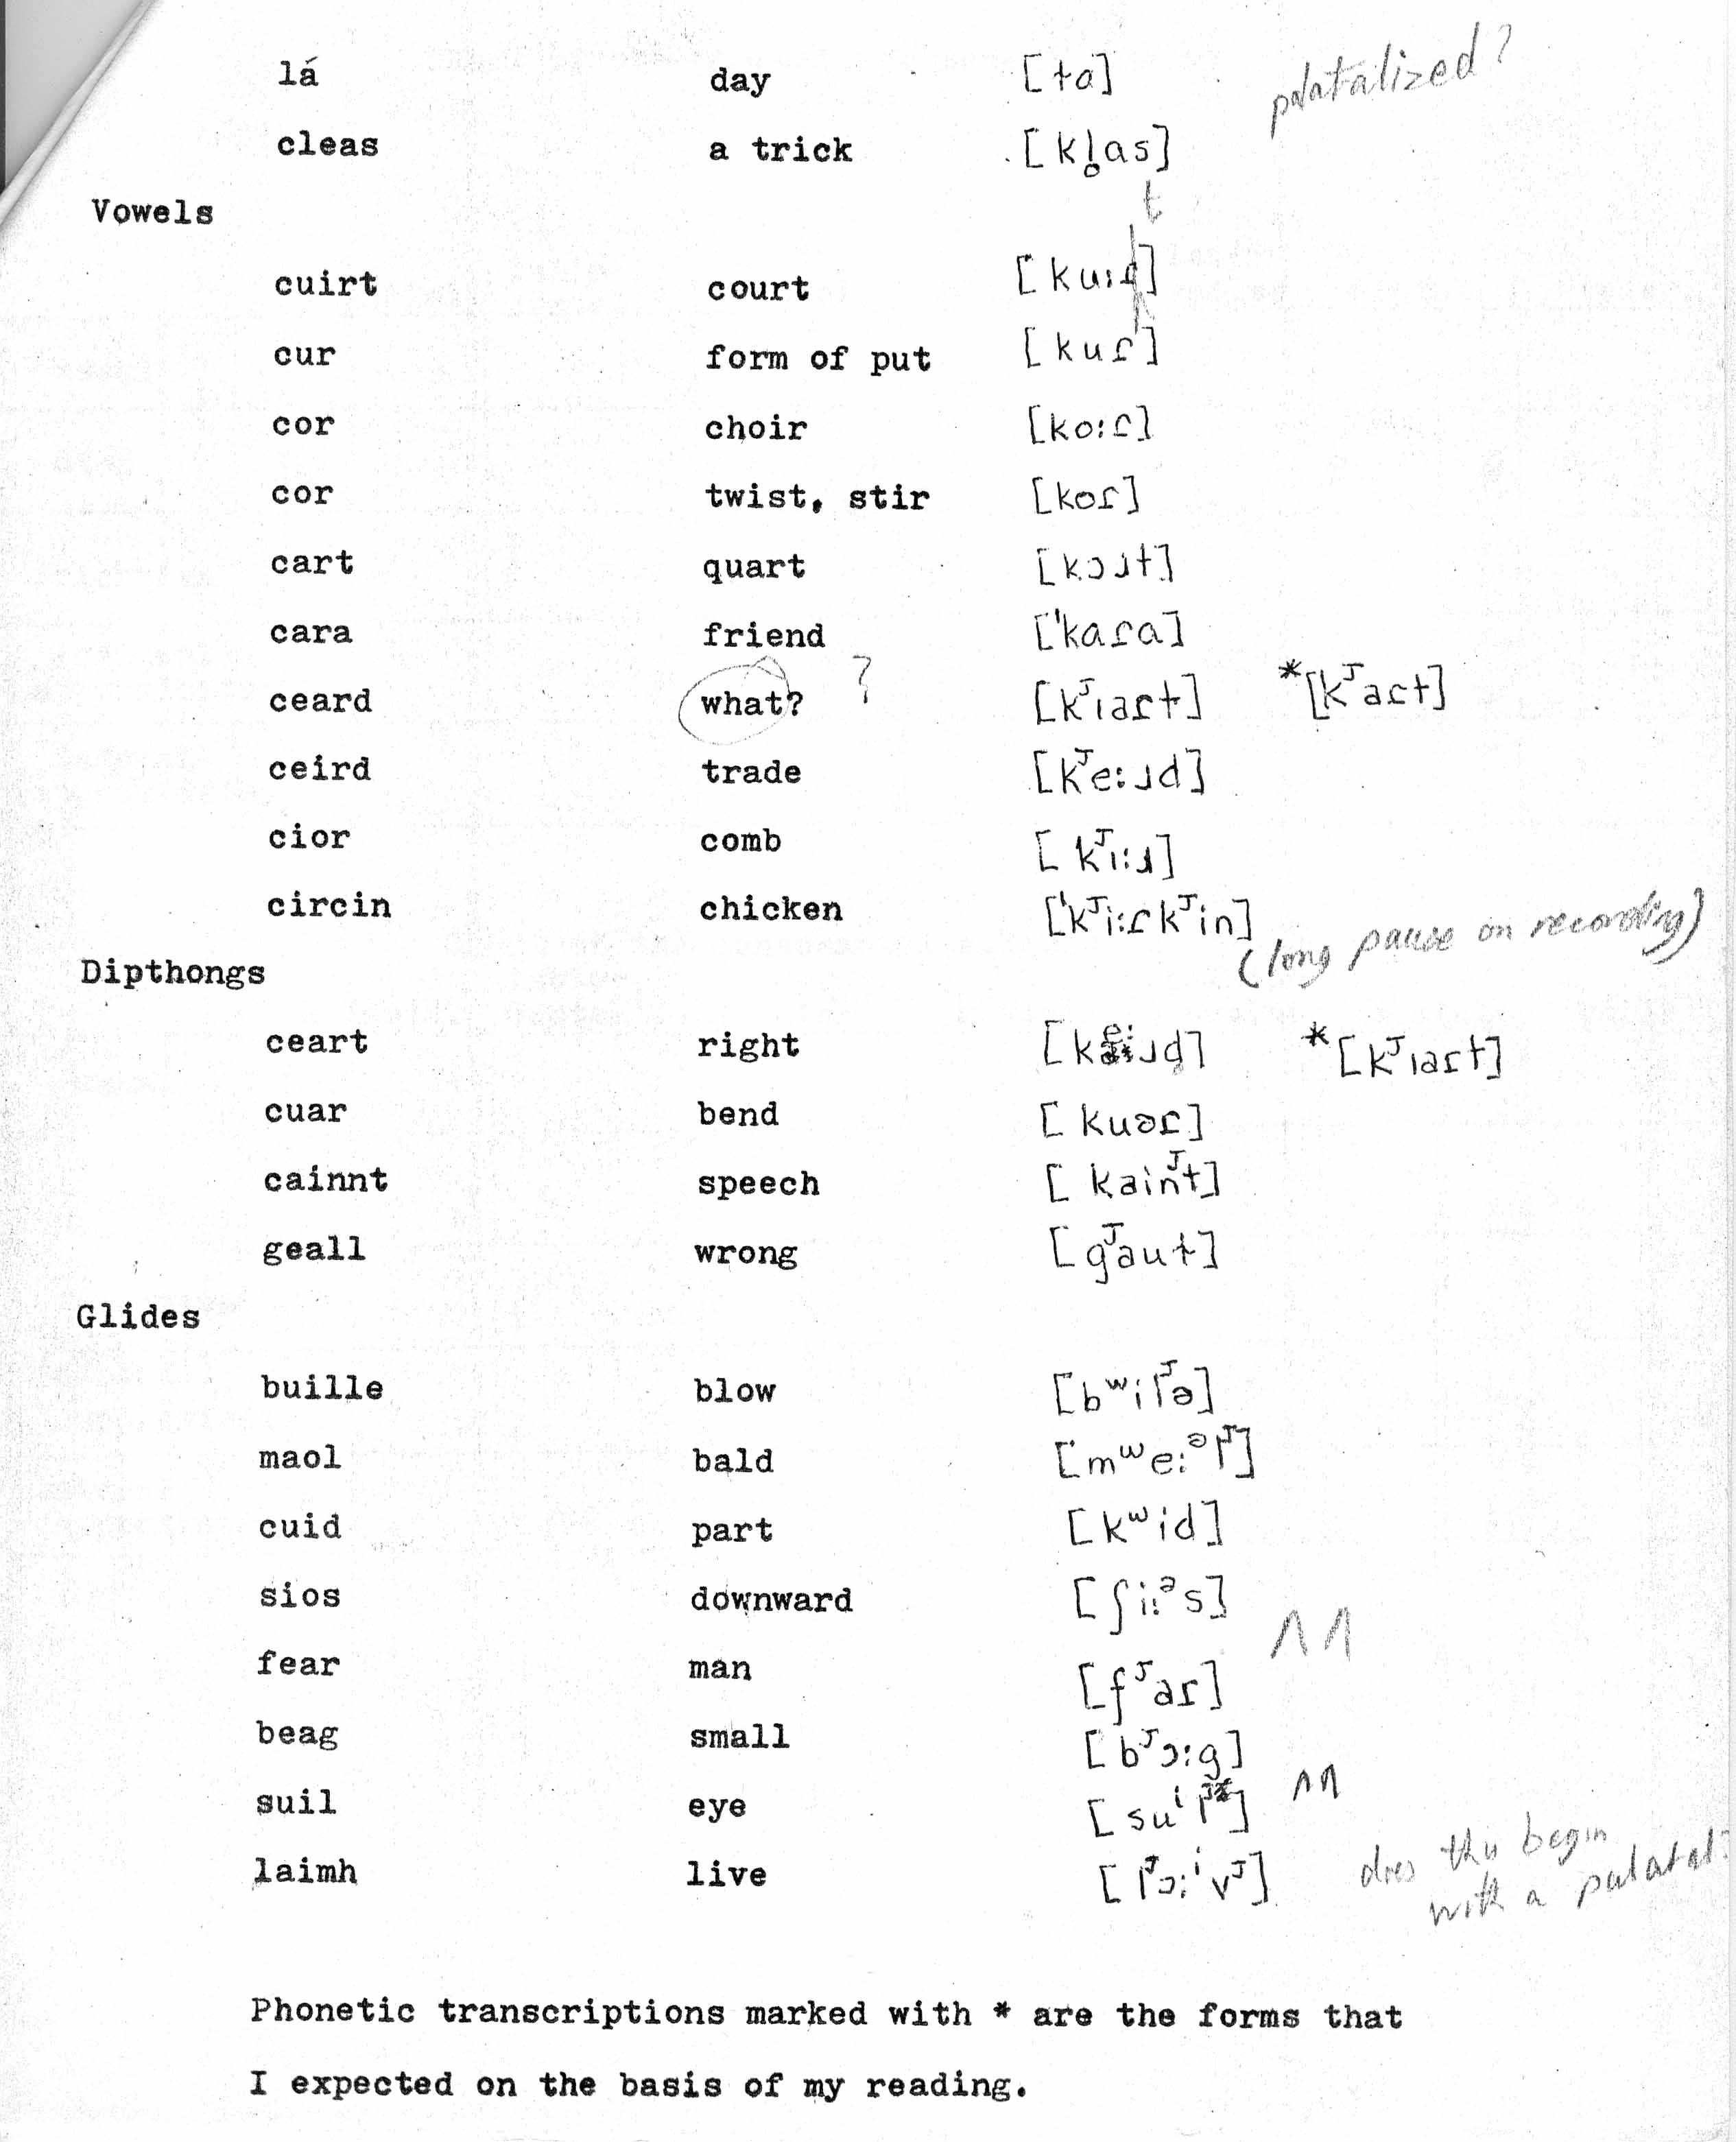 lá day [ɫa] palatalized?
cleas a trick [kl̥as]
Vowels t
cuirt court [ku:ɾ]
cur form of put [kuɾ]
cor choir [ko:ɾ]
cor twist, stir [koɾ]
cart quart [kɔɹt]
cara friend ['kaɾa]
ceard what? ? [kᴶıaɾt] *[kᴶaɾt]
ceird trade [kᴶe:ɹd]
cior comb [kᴶı:ɹ]
circin chicken ['kᴶi:ɾkᴶin] (long pause on recording)
Dipthongs
ceart right [ke:ɹd] *[kᴶıaɾt]
cuar bend [kuəɾ]
cainnt speech [kainᴶt]
geall wrong [gᴶauɫ]
Glides
buille blow [bʷilᴶə]
maol bald [mʷe:ᵊlᴶ]
cuid part [kʷid]
sios downward [ʃi:ᵊs]
fear man [fᴶaɾ] ʌʌ
beag small [bᴶɔ:g]
suil eye [suⁱlᴶ] ʌʌ
laimh live [lᴶɔ:ⁱvᴶ] does this begin
with a palatal?
Phonetic transcriptions marked with * are the forms that
I expected on the basis of my reading.